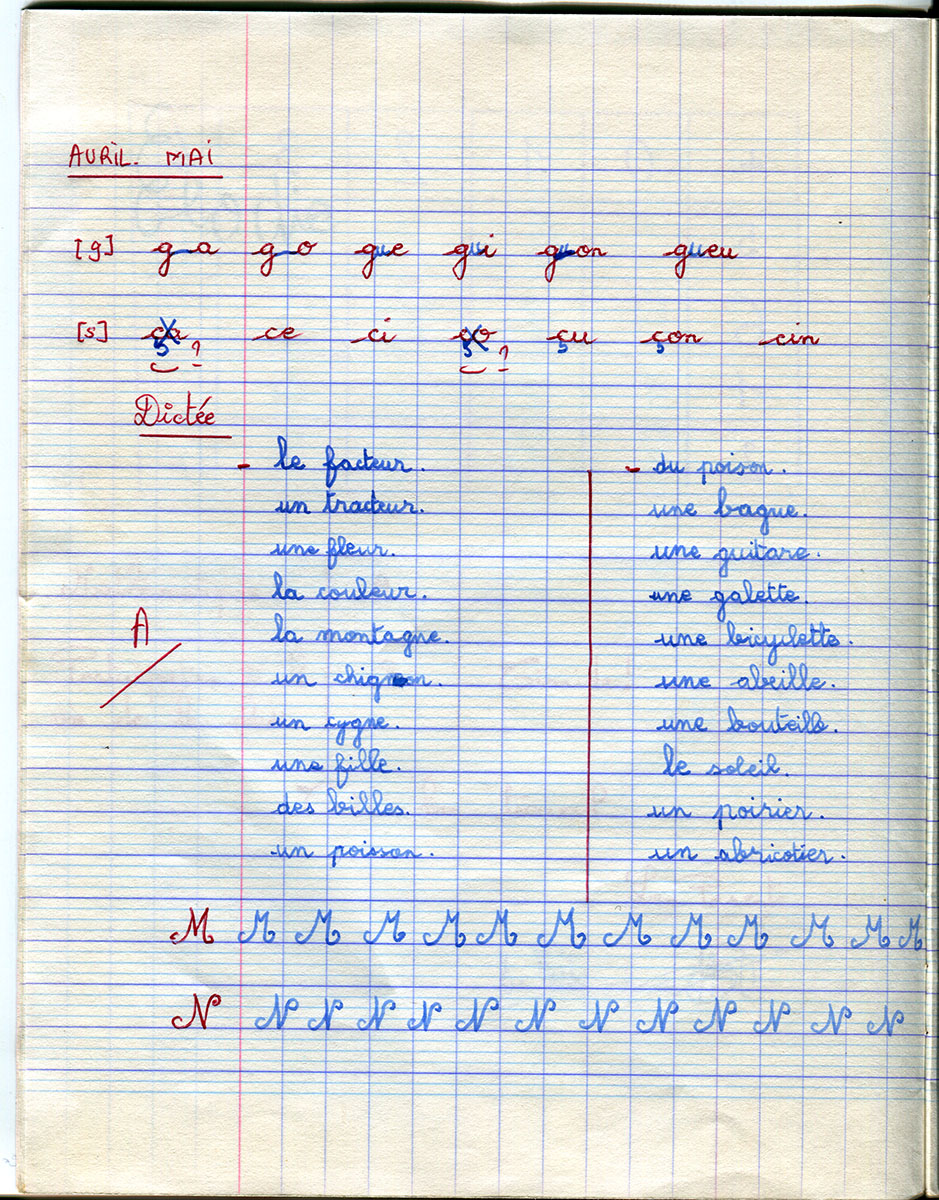 AVRIL. MAI
[g] ga go gue gui guon gueu
[s] ça ? ce ci ço ? çu çon cin
Dictée
- le facteur.
un tracteur.
une fleur.
la couleur.
la montagne.
un chignon.
un cygne.
une fille.
des billes.
un poisson.
- du poison.
une bague.
une guitare.
une galette.
une bicyclette.
une abeille.
une bouteille.
le soleil.
un poirier.
un abricotier.
A
M M M M M M M M M M M M M
N N N N N N N N N N N N N